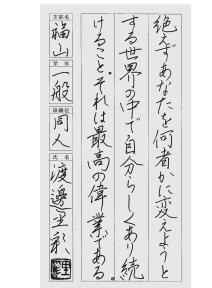 絶えずあなたを何者かに変えようと
する世界の中で自分らしくあり続
けること。それは最高の偉業である。
支部名
福山
学年
一般
段級位
同人
氏名
渡邊里彩